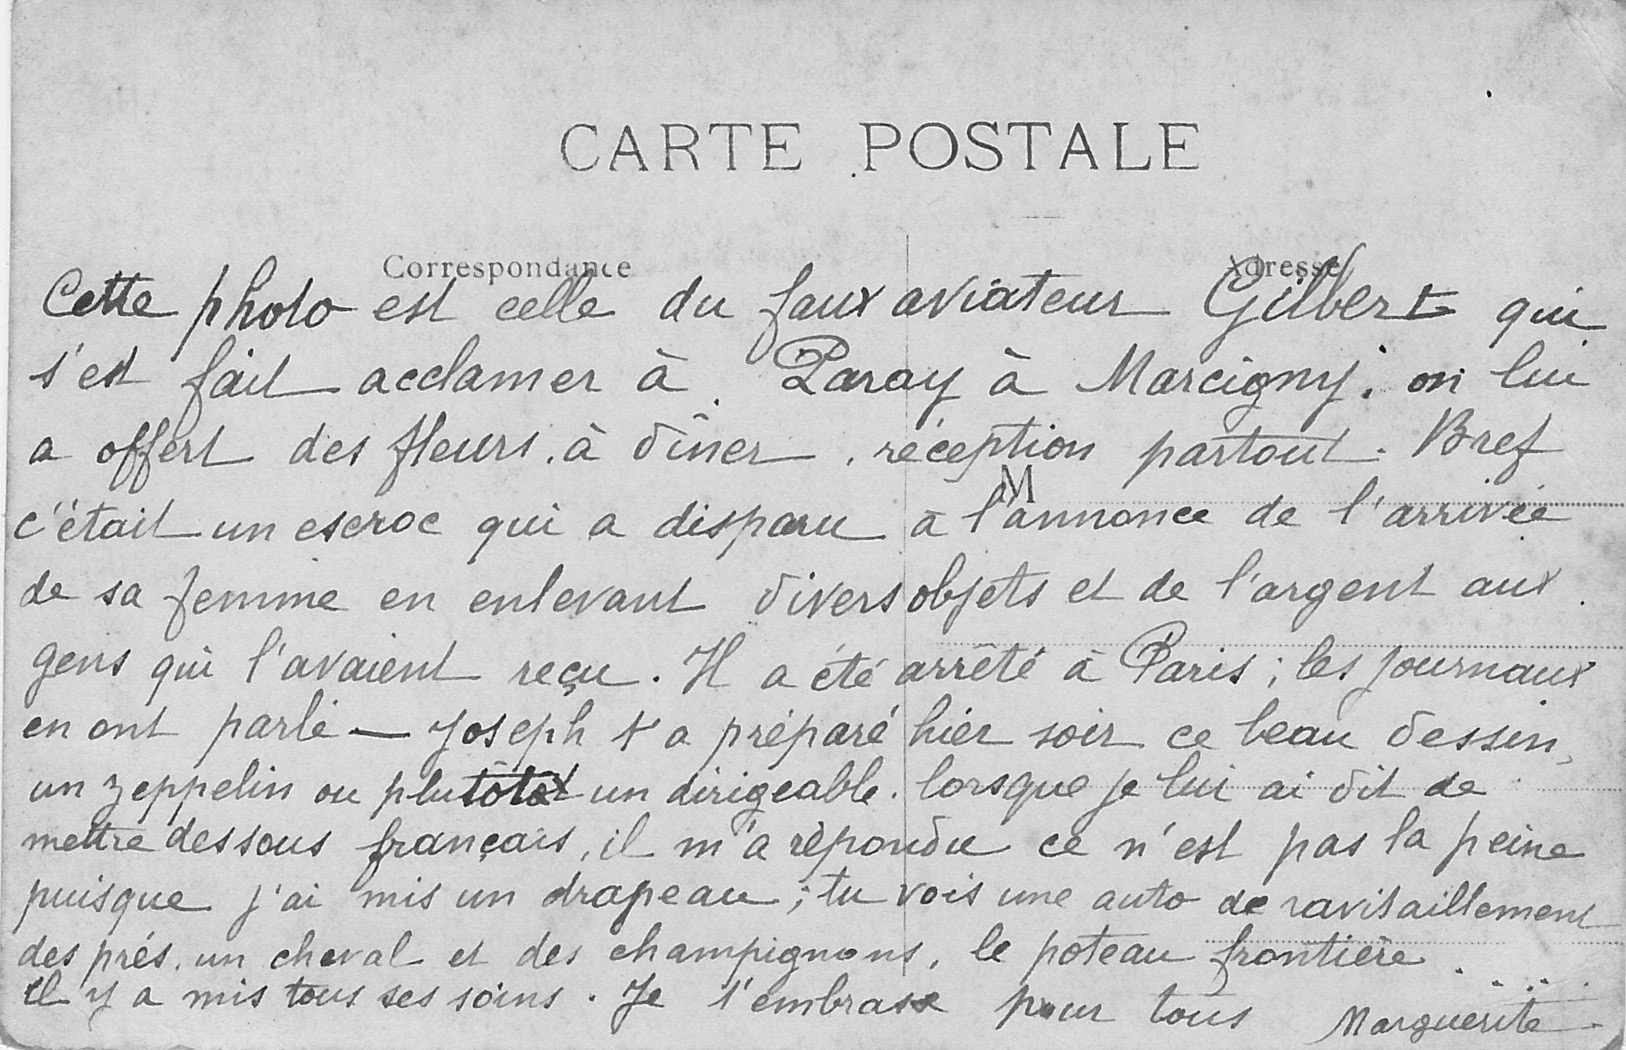 CARTE POSTALE
Correspondance
Adresse
Cette photo est celle du faux aviateur Gilbert qui
s'est fait acclamer à Paray à Marcigny. on lui
a offert des fleurs, à dîner, réception partout. Bref
M
c'était un escroc qui a disparu à l'annonce de l'arrivée
de sa femme en enlevant divers objets et de l'argent aux
gens qui l'avaient reçu. Il a été arrêté à Paris ; les journaux
en ont parlé — Joseph t'a préparé hier soir ce beau dessin,
un zeppelin ou plutôt un dirigeable. lorsque je lui ai dit de
mettre dessous français, il m'a répondu ce n'est pas la peine
puisque j'ai mis un drapeau ; tu vois une auto de ravitaillement
des prés, un cheval et des champignons, le poteau frontière.
il y a mis tous ses soins. Je t'embrasse pour tous Marguerite.